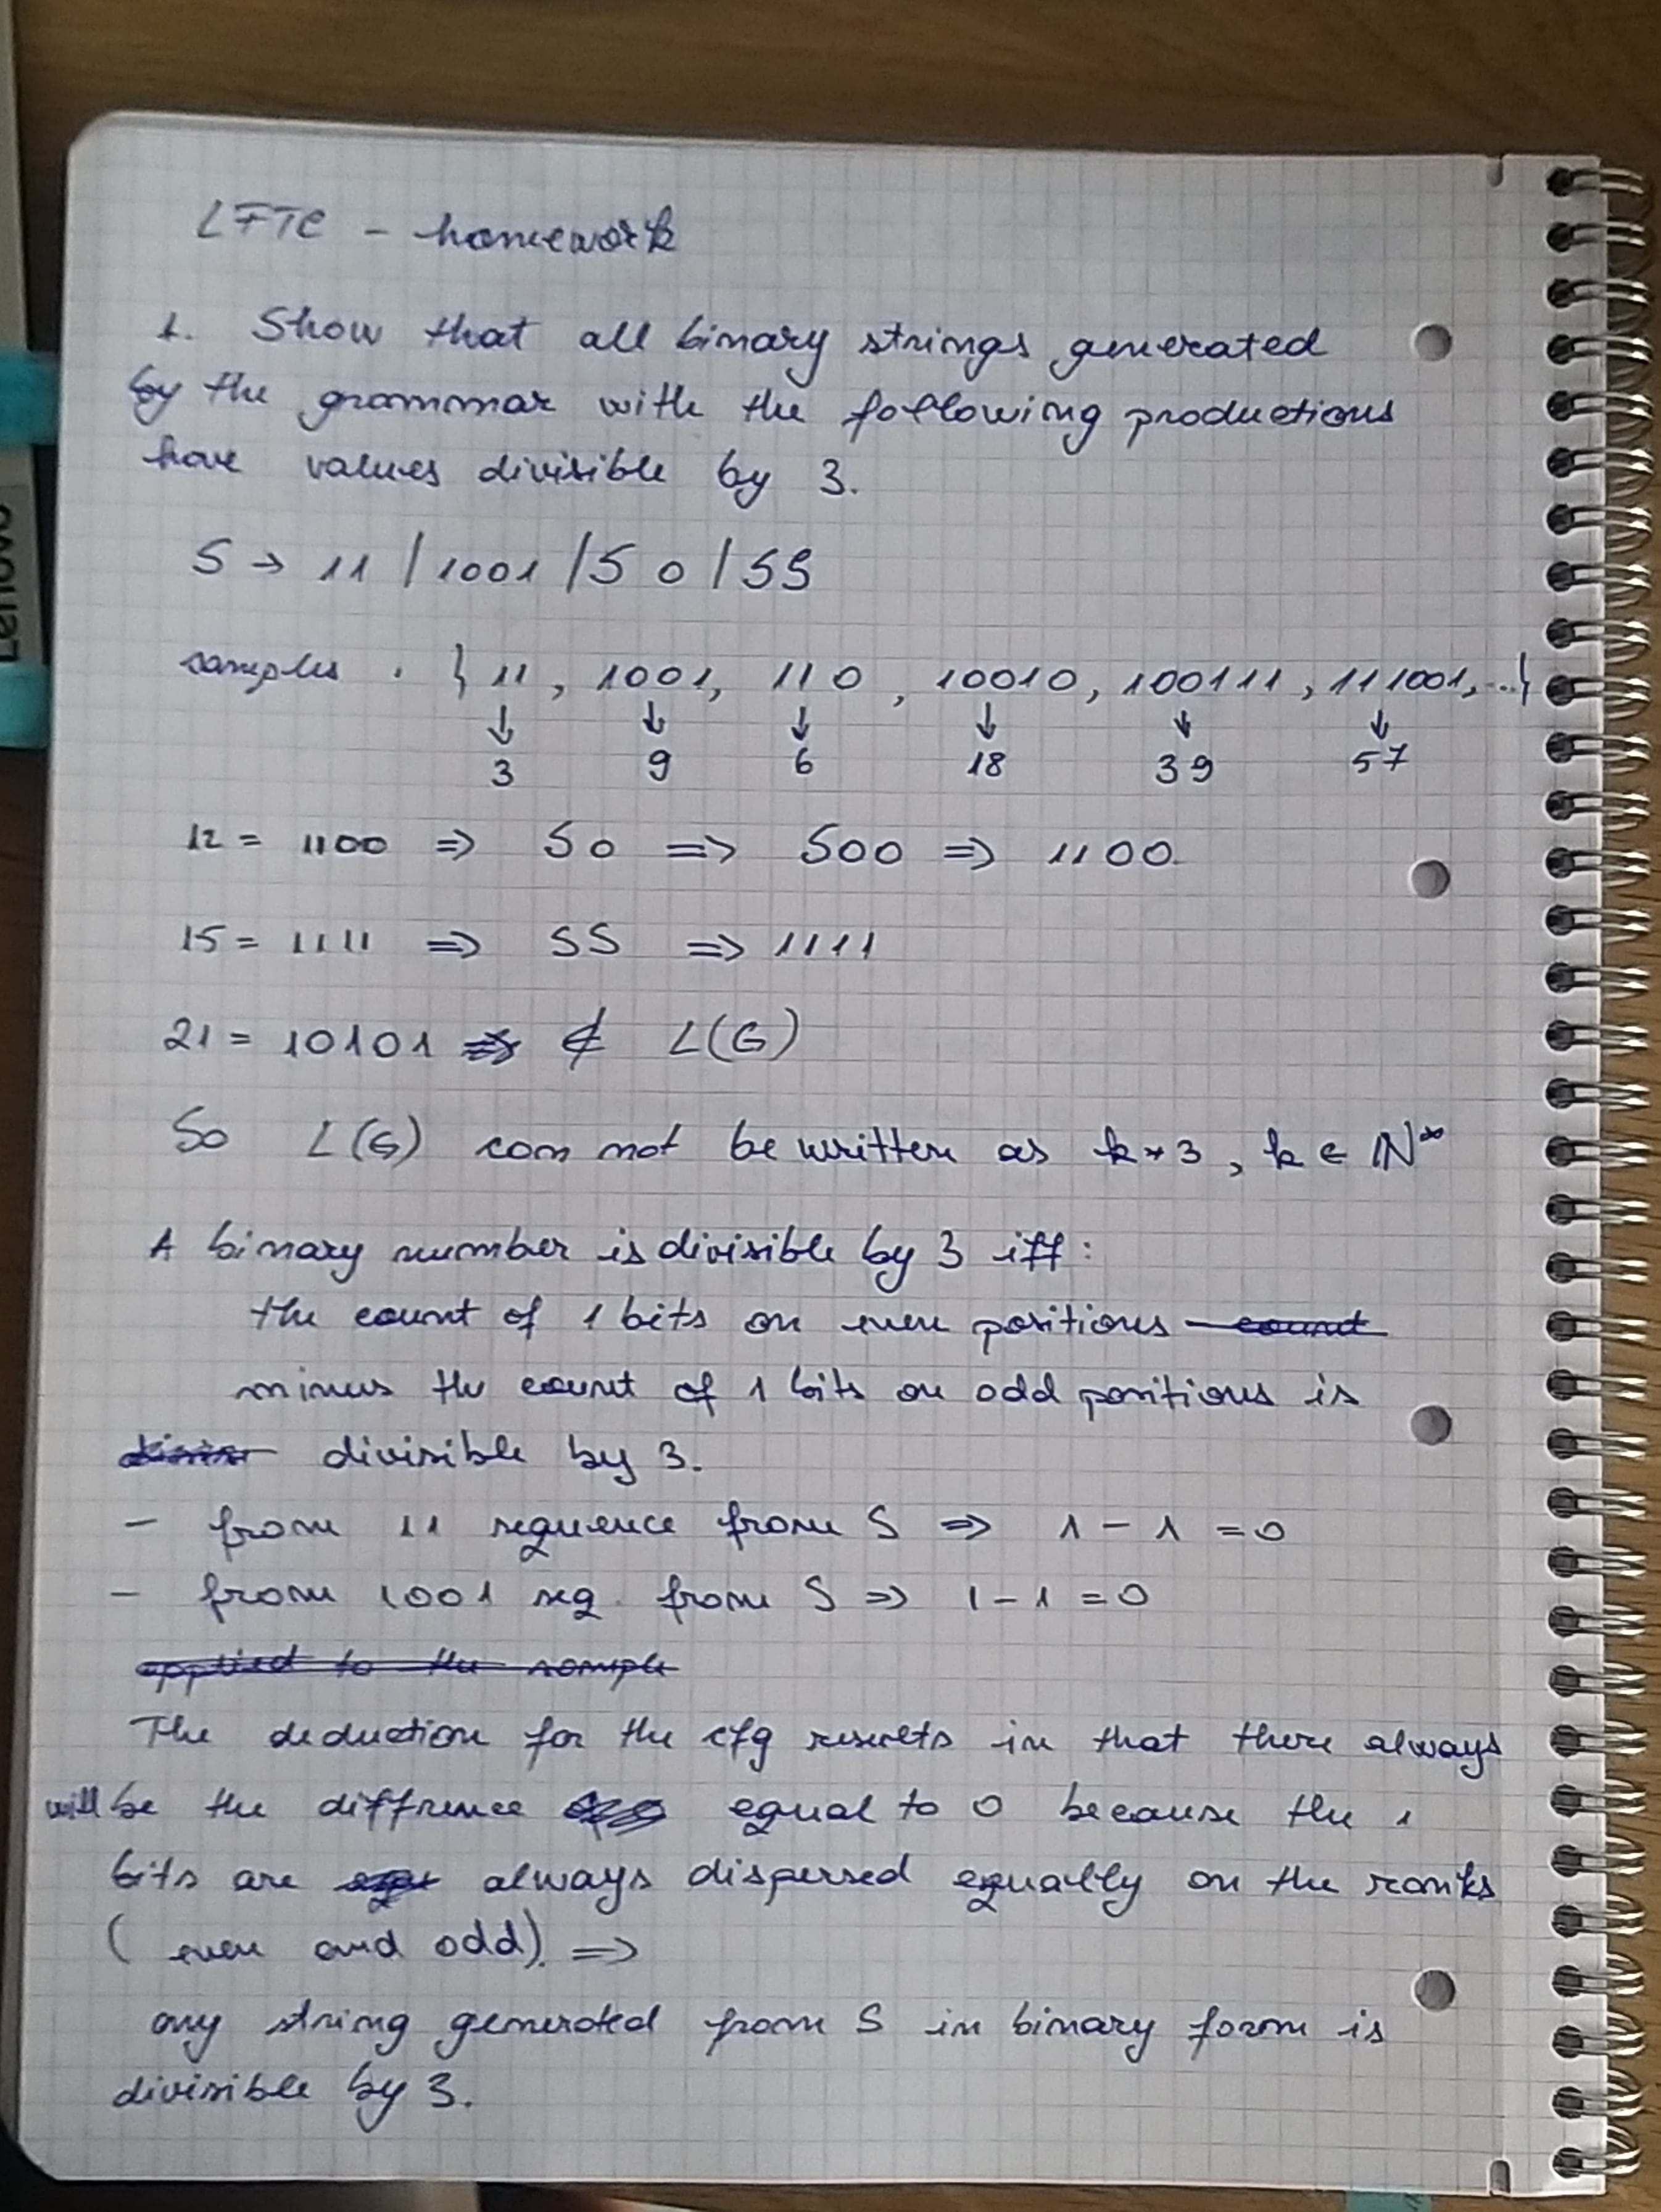 Lenovo
LFTC - homework
1. Show that all binary strings generated
by the grammar with the following productions
have values divisible by 3.
S → 11 | 1001 | S 0 | SS
samples : { 11, 1001, 110, 10010, 100111, 111001, ...}
↓ ↓ ↓ ↓ ↓ ↓
3 9 6 18 39 57
12 = 1100 => S0 => S00 => 1100.
15 = 1111 => SS => 1111
21 = 10101 ∉ L(G)
So L(G) can not be written as k*3, k ∈ ℕ*
A binary number is divisible by 3 iff:
the count of 1 bits on even positions count
minus the count of 1 bits on odd positions is
divisible by 3.
- from 11 sequence from S => 1 - 1 = 0
- from 1001 seq. from S => 1 - 1 = 0
applied to the sample
The deduction for the cfg results in that there always
will be the diffrence equal to 0 because the 1
bits are always dispersed equally on the ranks
(even and odd). =>
any string generated from S in binary form is
divisible by 3.